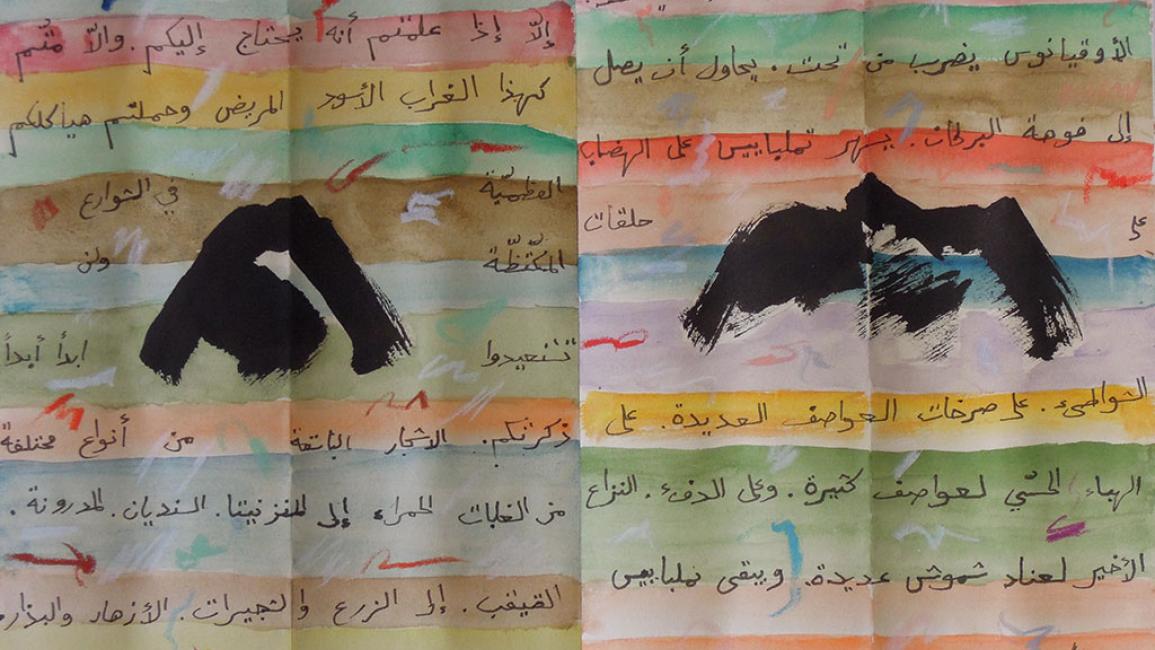 الأوقيانوس يضرب من تحت. يحاول أن يصل
إلى فوهة البركان. يسهر تملباييس على الهضاب
على حلقات
الشواطىء. على صرخات العواصف العديدة. على
الهباء الحسّي لعواصف كثيرة. وعلى الدفء. النزاع
الأخير لعناد شموش عديدة. ويبقى تملباييس
إلّا إذا علمتم أنه يحتاج إليكم. وإلّا متّم
كهذا الغراب الأسود المريض وحملتم هياكلكم
العظميّة في الشوارع
المكتظّة ولن
تستعيدوا ابدأ أبدأ
ذكرتكم. الاشجار من أنواع مختلفة
من الغابات الحمراء إلى السنديان. المدرونة.
القيقب. إلى الزرع والشجيرات. الأزهار والبذار